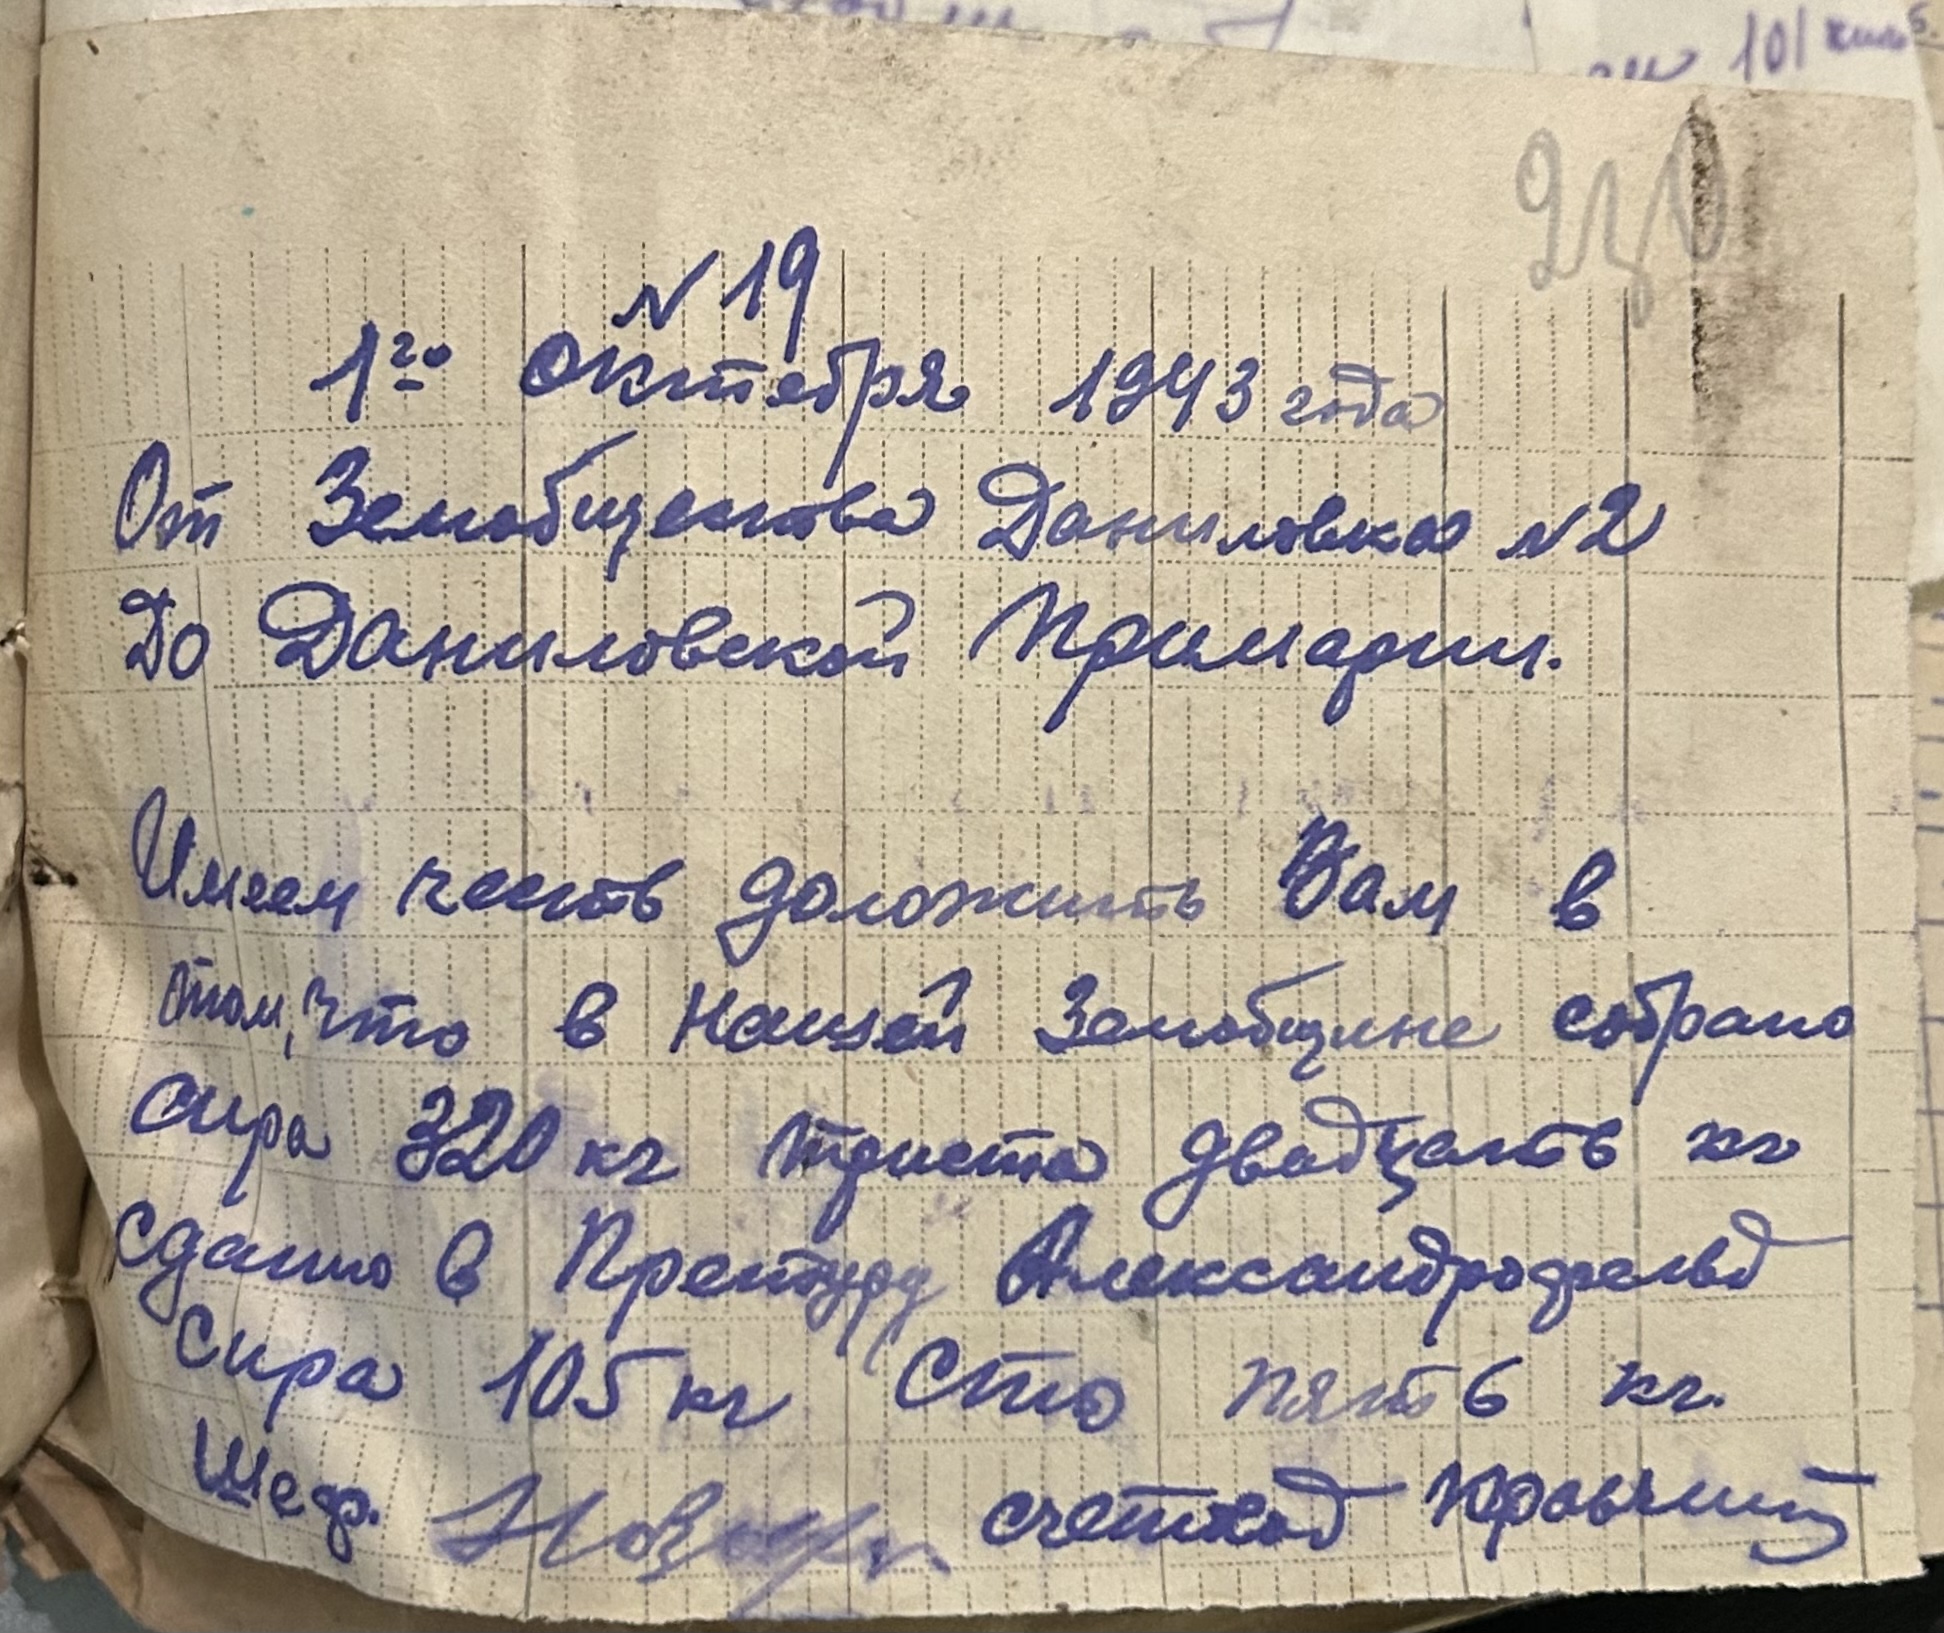 101
№ 19
1го октября 1943 года
От Земобщества Даниловка № 2
До Даниловской Примарии.
Имеем честь доложить Вам в
том, что в нашей Земобщине собрано
сира 320 кг триста двадцать кг
сдано в Претуру Александрофельд
Сира 105 кг Сто пять кг.
Шеф. счетовод